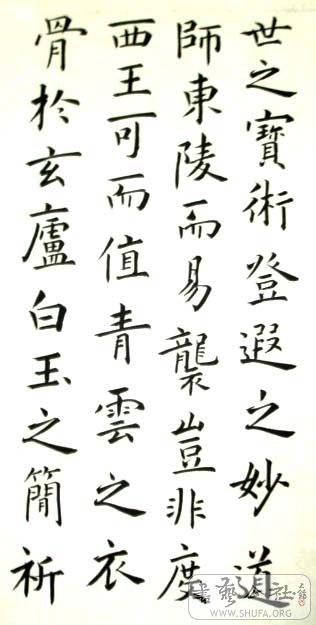 世之寶術登遐之妙道
師東陵而易襲豈非度
西王可而值青雲之衣
骨於玄廬白玉之簡祈
WWW.SHUFA.ORG